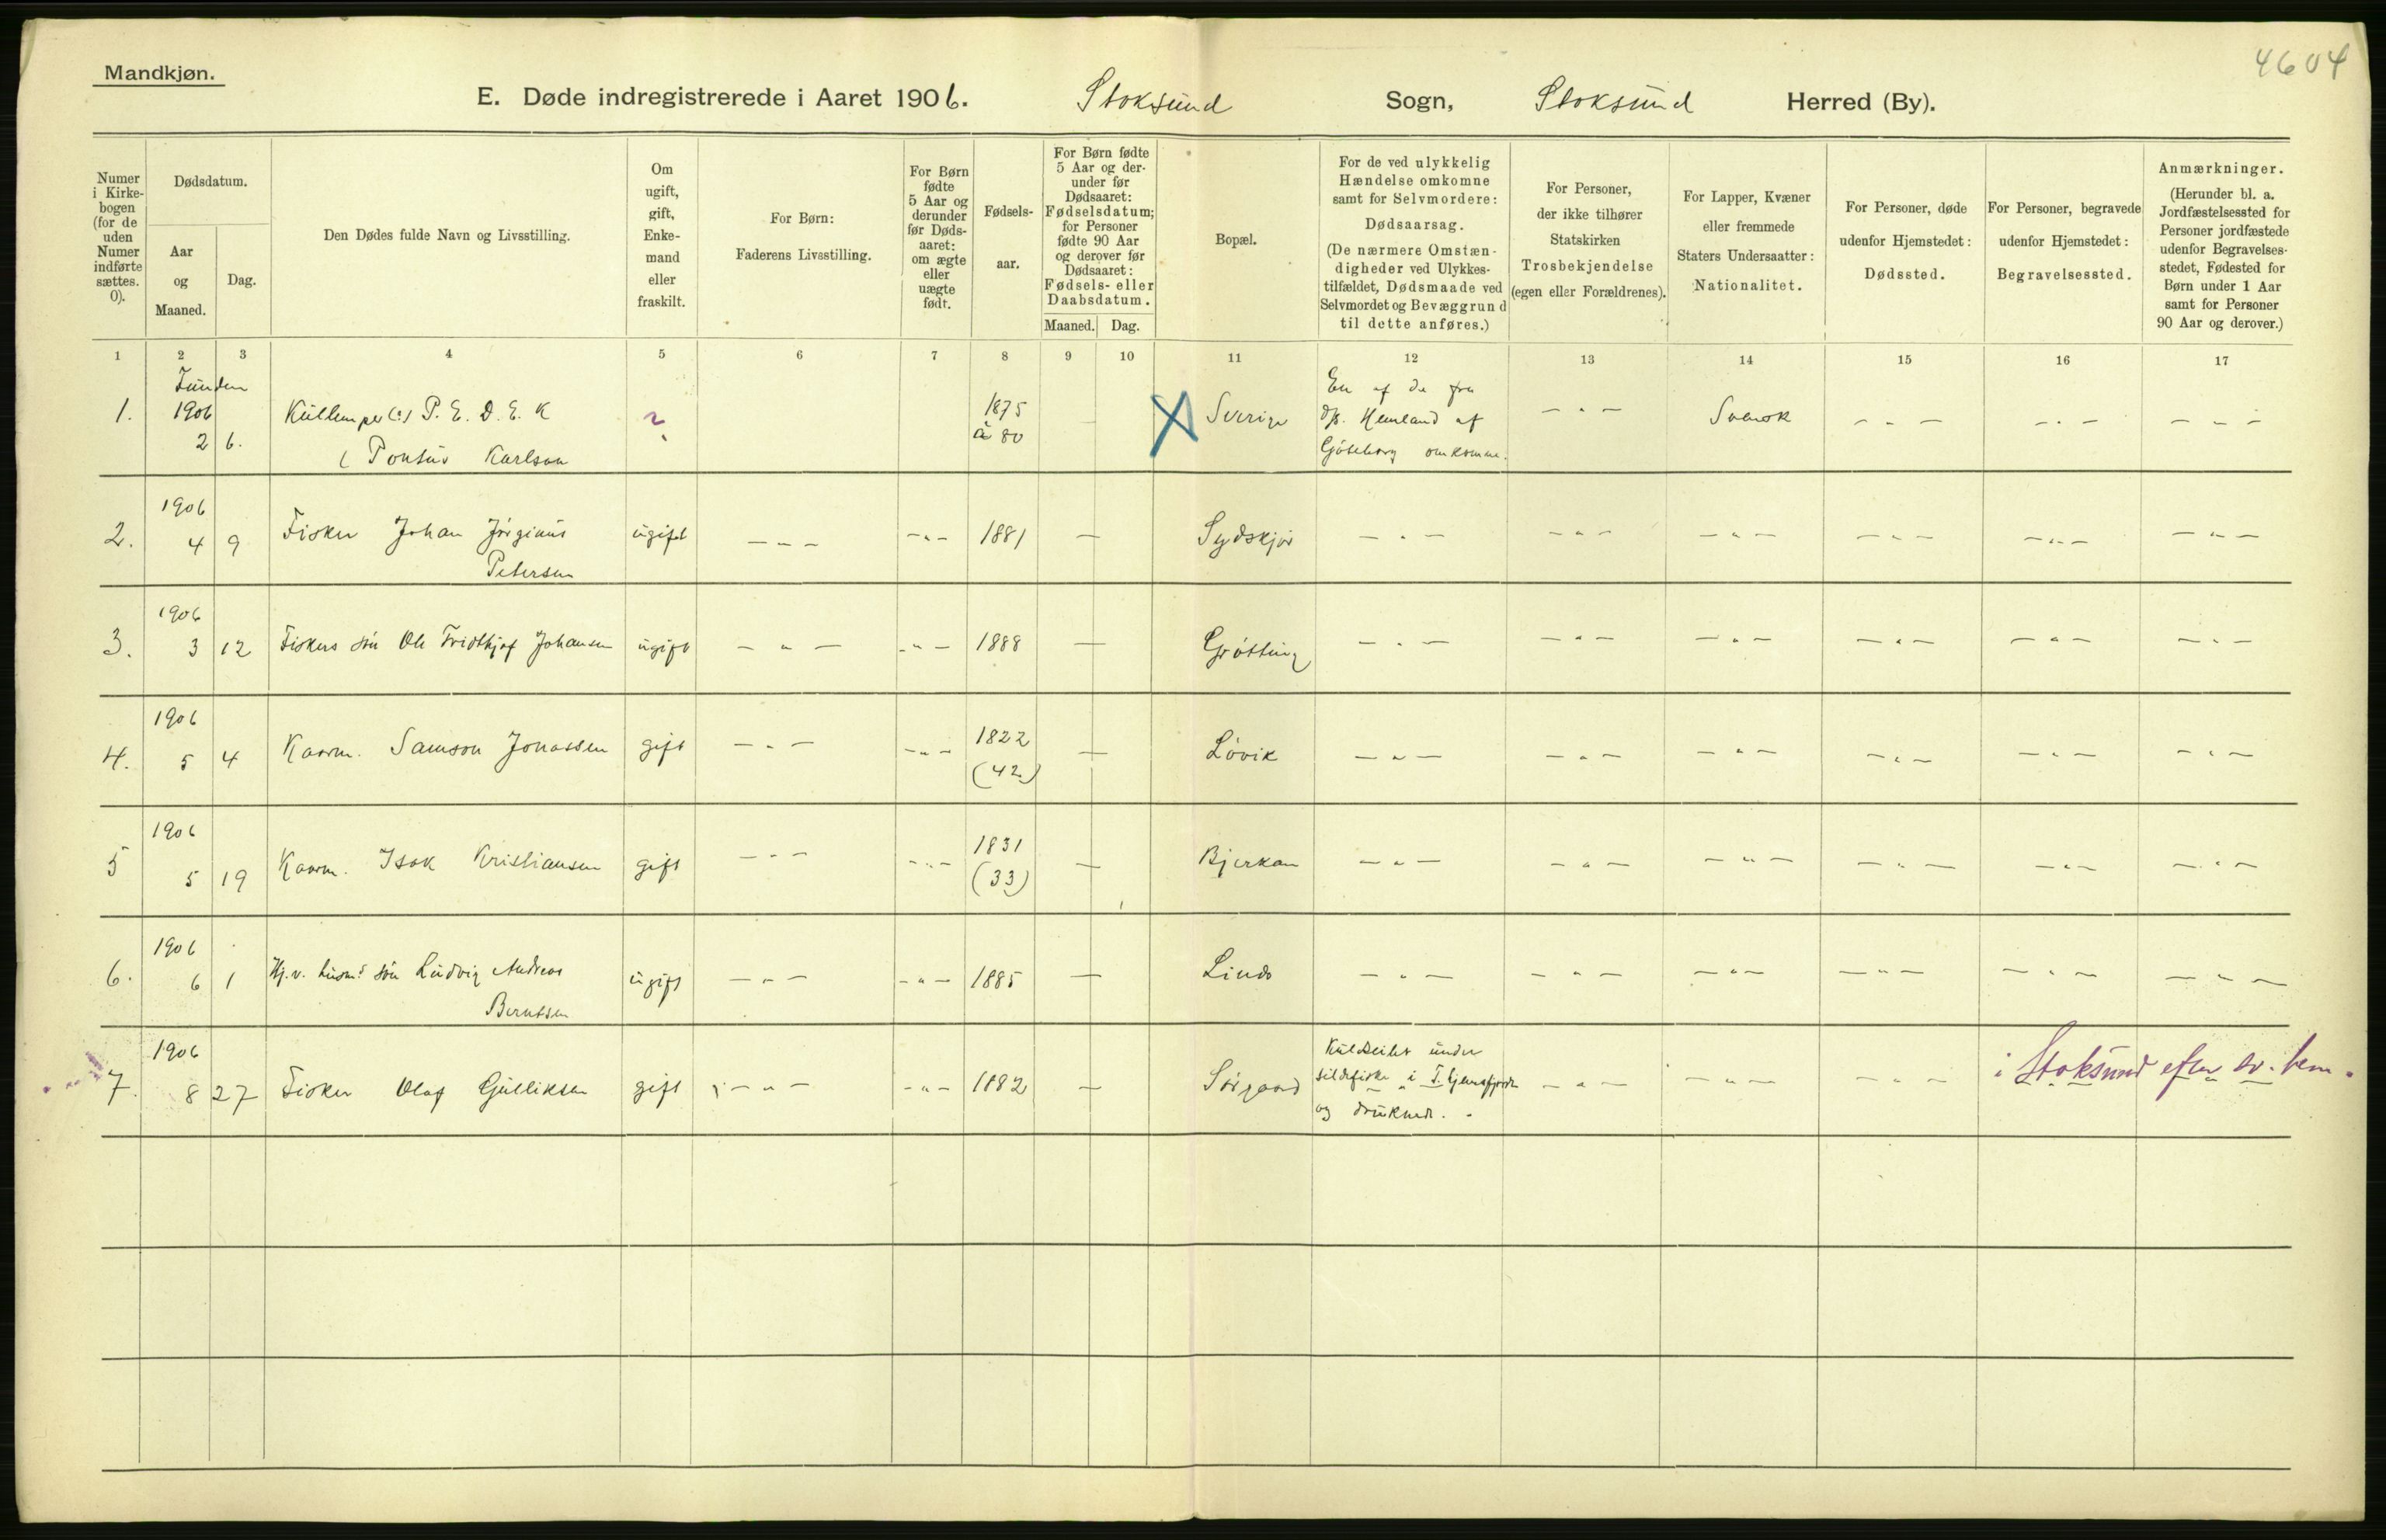 4604
Mandkjøn.
E. Døde indregistrerede i Aaret 1906. Stoksund Sogn, Stoksund Herred (By).
Numer i Kirke-bogen (for de uden Numer indførte sættes. 0).
Dødsdatum.
Aar og Maaned.
Dag.
Den Dødes fulde Navn og Livsstilling.
Om ugift, gift, Enke-mand eller fraskilt.
For Børn:
Faderens Livsstilling.
For Børn fødte 5 Aar og derunder før Døds-aaret: om ægte eller uægte født.
Fødsels-aar.
For Børn fødte 5 Aar og der-under før Dødsaaret: Fødselsdatum; for Personer fødte 90 Aar og derover før Dødsaaret: Fødsels- eller Daabsdatum.
Maaned. Dag.
Bopæl.
For de ved ulykkelig Hændelse omkomne samt for Selvmordere:
Dødsaarsag.
(De nærmere Omstæn-digheder ved Ulykkes-tilfældet, Dødsmaade ved Selvmordet og Bevæggrund til dette anføres.)
For Personer, der ikke tilhører Statskirken
Trosbekjendelse
(egen eller Forældrenes).
For Lapper, Kvæner eller fremmede Staters Undersaatter:
Nationalitet.
For Personer, døde udenfor Hjemstedet:
Dødssted.
For Personer, begravede udenfor Hjemstedet:
Begravelsessted.
Anmærkninger.
(Herunder bl. a. Jordfæstelsessted for Personer jordfæstede udenfor Begravelses-stedet, Fødested for Børn under 1 Aar samt for Personer 90 Aar og derover.)
1 2 3 4 5 6 7 8 9 10 11 12 13 14 15 16 17
Funden
1. 1906 2 6. P. E. D. E. K
( Pontus Karlson
? 1875 à 80 X Sverige
En af de fra
d/s. Hemland af
Göteborg omkomne.
– " – Svensk – " – – " – – " –
2. 1906 4 9 Fisker Johan Jørginus
Petersen ugift – " – – " – 1881 – Sydskjør – " – – " – – " – – " – – " – – " –
3. 1906 3 12 Fiskers søn Ole Fridthjof Johansen ugift – " – – " – 1888 – Grøtting – " – – " – – " – – " – – " – – " –
4. 1906 5 4 Kaarm. Samson Jonassen gift – " – – " – 1822 (42) – Løvik – " – – " – – " – – " – – " – – " –
5 1906 5 19 Kaarm. Isak Kristiansen gift – " – – " – 1831 (33) – Bjerkan – " – – " – – " – – " – – " – – " –
6. 1906 6 1 søn Ludvig Andreas
Berntsen ugift – " – – " – 1885 – Linds – " – – " – – " – – " – – " – – " –
7. 1906 8 27 Fisker Olaf Gulliksen gift – " – – " – 1882 – Sørgaard
Kuldseilet under
sildefiske i
og druknede.
– " – – " – – " – i Stoksund efter sv. hem.